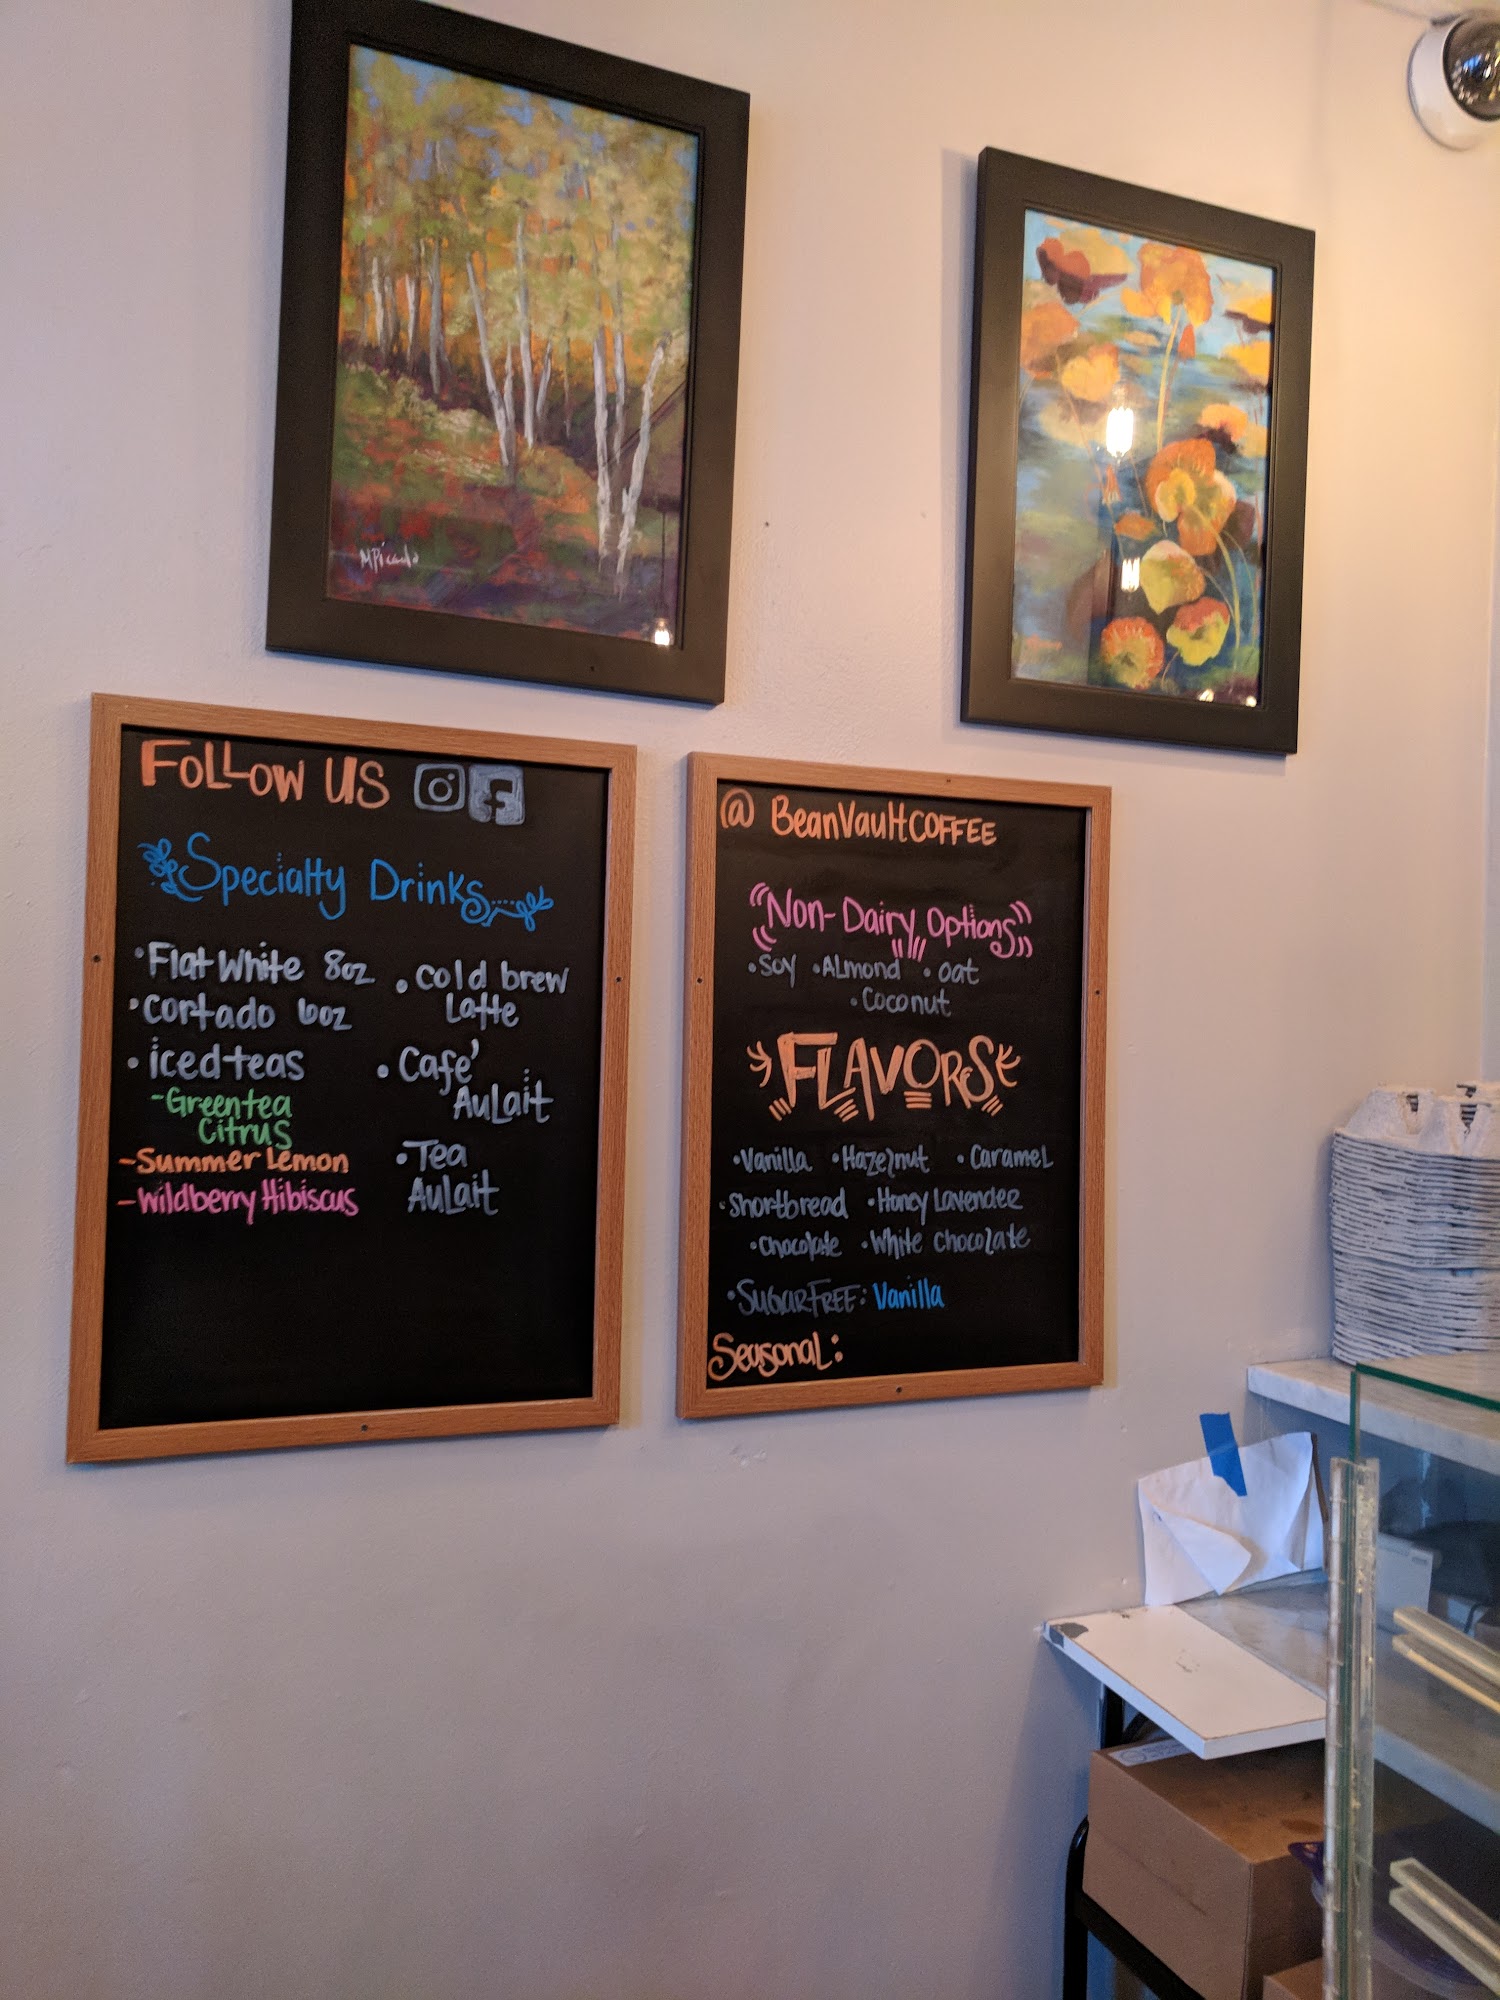 MPicardo
FOLLOW US
Specialty Drinks
• Flat White 8oz
• Cortado 6oz
• iced teas
- Green tea
Citrus
- Summer Lemon
- Wildberry Hibiscus
• Cold brew
Latte
• Cafe'
AuLait
• Tea
AuLait
@ BeanVaultCOFFEE
Non-Dairy Options
• Soy • ALmond • oat
• Coconut
FLAVORS
• Vanilla • Hazelnut • CarameL
• Shortbread • Honey Lavender
• Chocolate • White chocolate
• SUGAR FREE: Vanilla
SeasonaL: